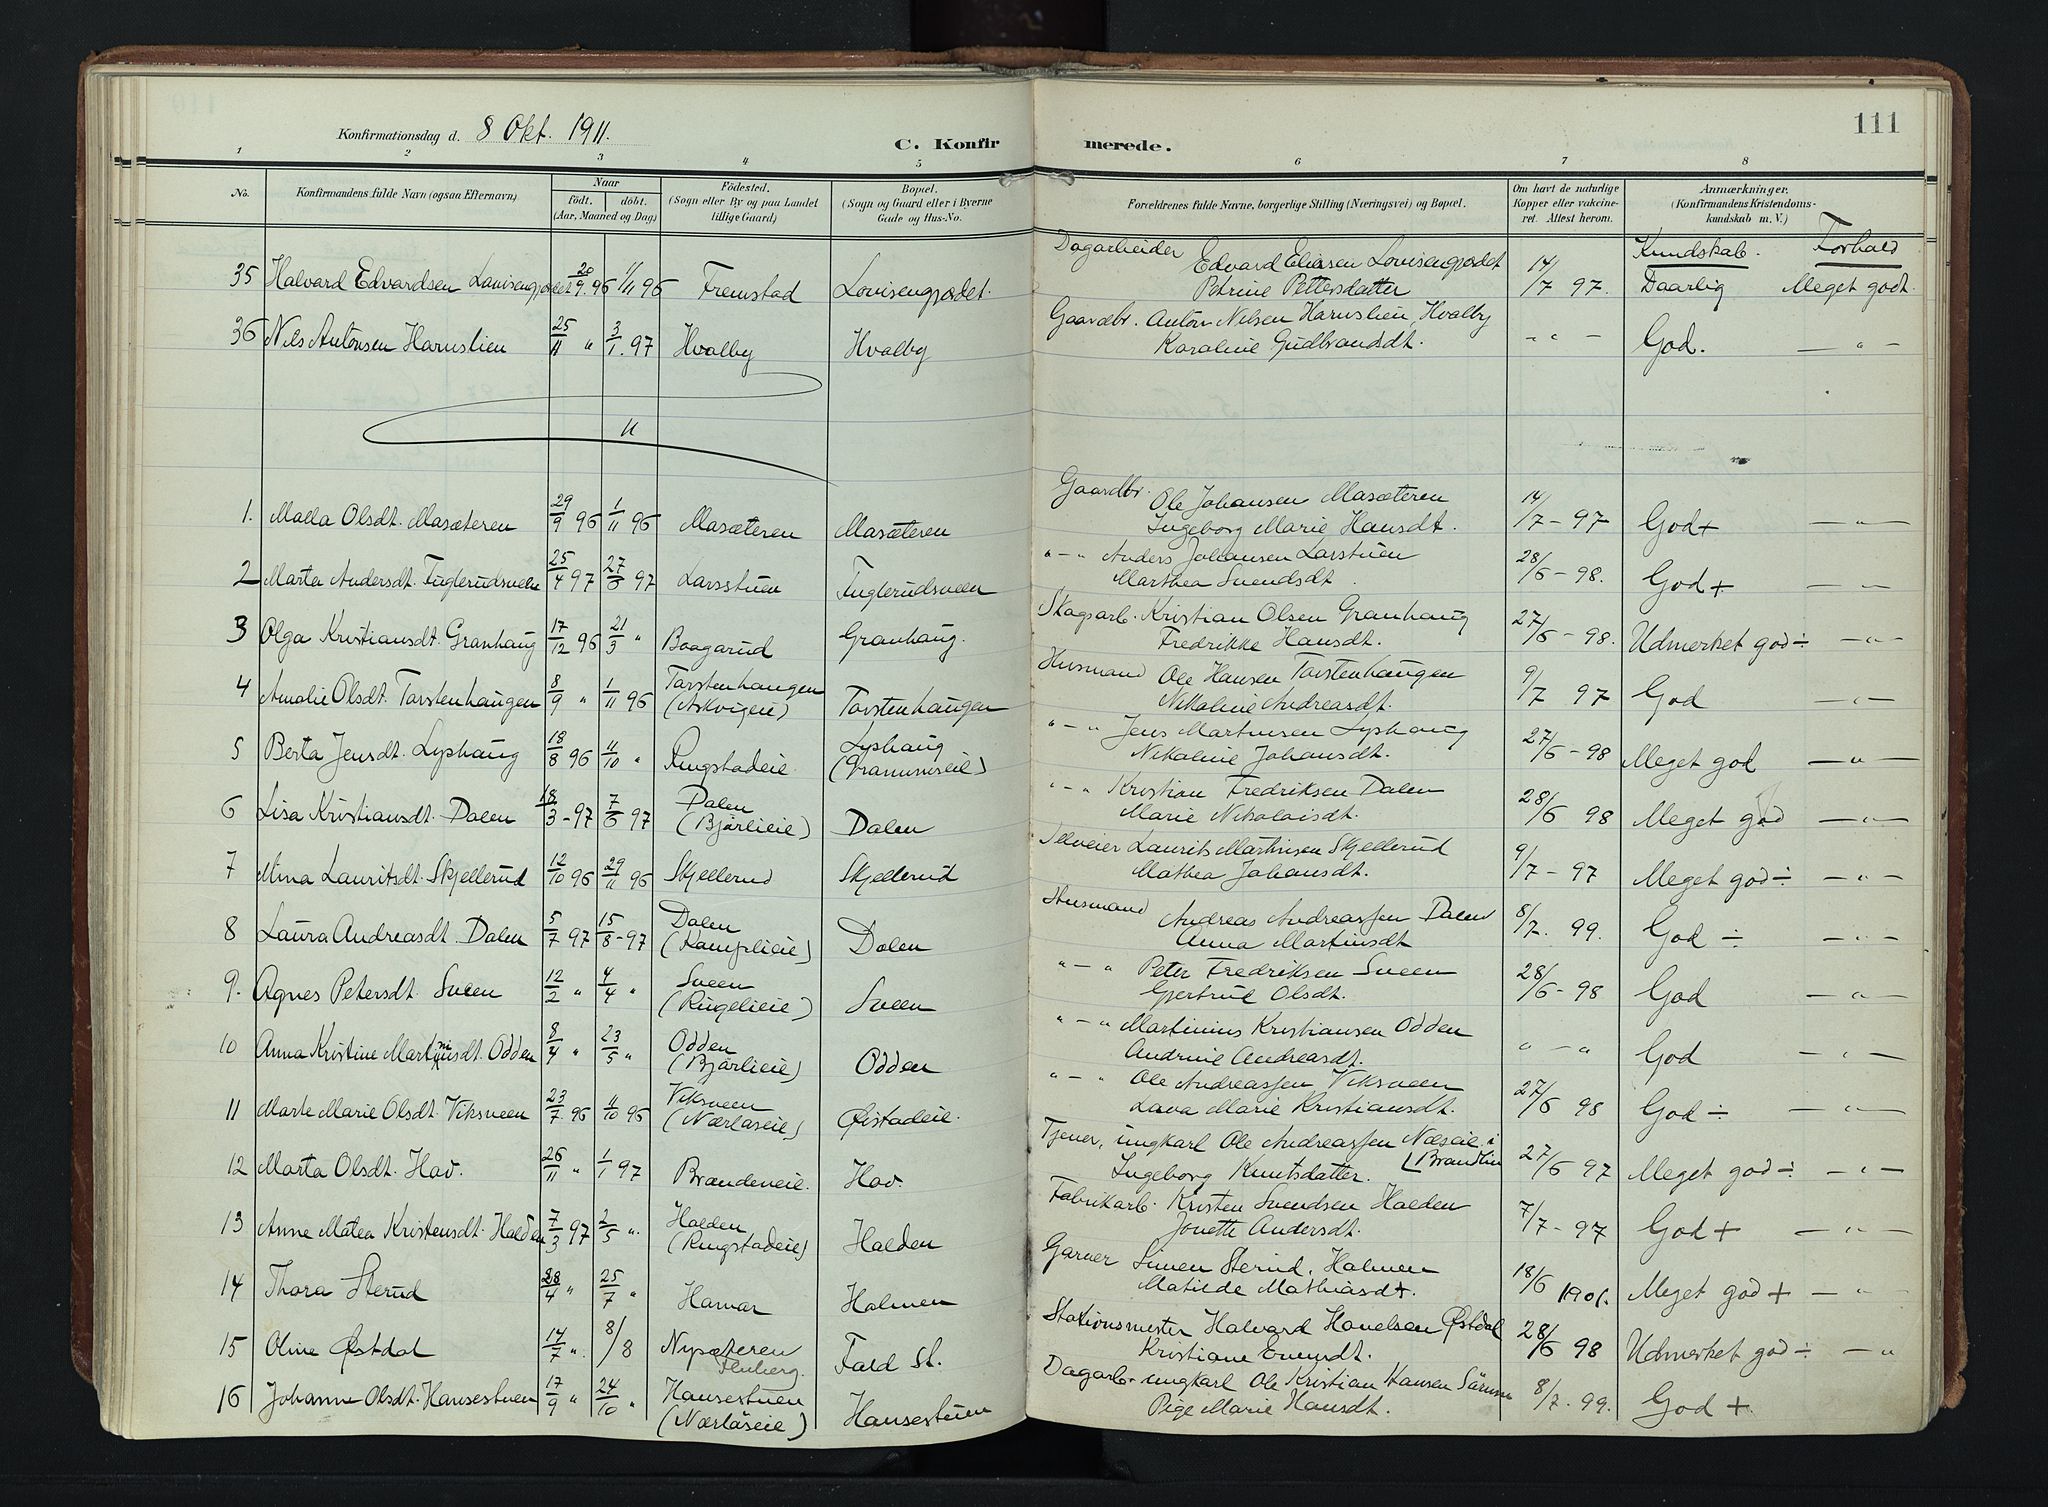 111
Konfirmationsdag d. 8 Okt. 1911.
C. Konfirmerede.
1 2 3 4 5 6 7 8
No. Konfirmandens fulde Navn (ogsaa Efternavn) Naar født. døbt. (Aar, Maaned og Dag) Fødested. (Sogn eller By og paa Landet tillige Gaard) Bopæl. (Sogn og Gaard eller i Byerne Gade og Hus-No. Forældrenes fulde Navne, borgerlige Stilling (Næringsvei) og Bopæl. Om havt de naturlige Kopper eller vakcineret. Attest herom. Anmærkninger. (Konfirmandens Kristendomskundskab m. V.)
Kundskab. Forhold
35 Halvard Edvardsen Lovisengjædet 20/9 96 1/11 96 Fremstad Lovisengjædet. Dagarbeider Edvard Eliasen Lovisengjædet 14/7 97. Daarlig Meget godt.
Petrine Pettersdatter
36 Nils Antonsen Harnslien 25/11 " 3/1. 97 Hvalby Hvalby Gaardbr. Anton Nilsen Harnslien, Hvalby - " - God. — " —
Karoline Gudbrandsdt.
"
1. Malla Olsdt. Masæteren 29/9 96 1/11 96 Masæteren Masæteren Gaardbr. Ole Johansen Masæteren 14/7 - 97 God + — " —
Ingeborg Marie Hansdt.
2 Marta Andersdt. Fuglerudsveen 25/4 97 27/6 97 Larsstuen Fuglerudsveen " - " Anders Johansen Larsstuen 28/6 - 98. God + — " —
Marthea Svendsdt.
3 Olga Kristiansdt. Granhaug 17/12 96 21/3 " Baagarud Granhaug. Skogsarb. Kristian Olsen Granhaug 27/6 - 98. Udmerket god ÷ — " —
Fredrikke Hansdt.
4 Amalie Olsdt. Torstenhaugen 8/9 " 1/11 96 Torstenhaugen (Askvigen) Torstenhaugen Husmand Ole Hansen Torstenhaugen 9/7 97 God — " —
Nikoline Andreasdt.
5 Berta Jensdt. Lyshaug 18/8 96 11/10 " Ringstadeie. Lyshaug " - " Jens Martinsen Lyshaug 27/6 - 98 Meget god — " —
Nikoline Johansdt.
6 Lisa Kristiansdt. Dalen 18/3 - 97 7/6 97 Dalen (Bjørlieie) Dalen " - " Kristian Fredriksen Dalen 28/6 98 Meget god — " —
Marie Nikolaisdt.
7 Mina Lauritsdt. Skjellerud 12/10 96 29/11 96 Skjellerud Skjellerud Selveier Laurits Martinsen Skjellerud 9/7 - 97 Meget god ÷ — " —
Mathea Johansdt.
8 Laura Andreasdt. Dalen 5/7 97 15/8 - 97 Dalen (Kamplieie) Dalen Husmand Andreas Andreassen Dalen 8/7. 99. God ÷ — " —
Anna Martinsdt
9. Agnes Petersdt. Sveen 12/2 " 4/4 " Sveen (Ringelieie) Sveen " - " Peter Fredriksen Sveen 28/6 - 98 God — " —
Gjertrud Olsdt.
10 Anna Kristine Martiniusdt. Odden 8/4 " 23/5 " Odden (Bjørlieie) Odden " - " Martinius Kristiansen Odden " - " God — " —
Andrine Andreasdt.
11 Marte Marie Olsdt. Viksveen 23/7 96 11/10 96 Viksveen (Nærlaseie) Øistadeie. " - " Ole Andreassen Viksveen 27/6 98 God ÷ — " —
Lava Marie Kristiansdt.
12 Marta Olsdt. Hov. 26/11 " 1/1 97 Brandeneie. Hov. Tjener, ungkarl Ole Andreassen Næseie i Brandlin 27/6 97 Meget god ÷ — " —
Ingeborg Knutsdatter.
13 Anne Matea Kristensdt. Halden 7/3 97 2/5 " Halden (Ringstadeie) Halden Fabrikarb. Kristen Svendsen Halden 7/7 - 97 God + — " —
Jonette Andersdt.
14 Thora Sterud 28/4 " 25/7 " Hamar Holmen Garver Simen Sterud, Holmen 18/6 1901. Meget god + — " —
Matilde Mathiasdt.
15 Oline Østdal 14/7 " 8/8 Nysæteren Fluberg. Fald St. Stationsmester Halvard Havelsen Østdal 28/6 98 Udmerket god ÷ — "
Kristiane Evensdt.
16 Johanne Olsdt. Hansestuen 17/9 " 24/10 " Hansestuen (Nærlaseie) Hansestuen Dagarb. ungkarl Ole Kristian Hansen Sørum 8/7. 99. God +
Pige Marie Hansdt.